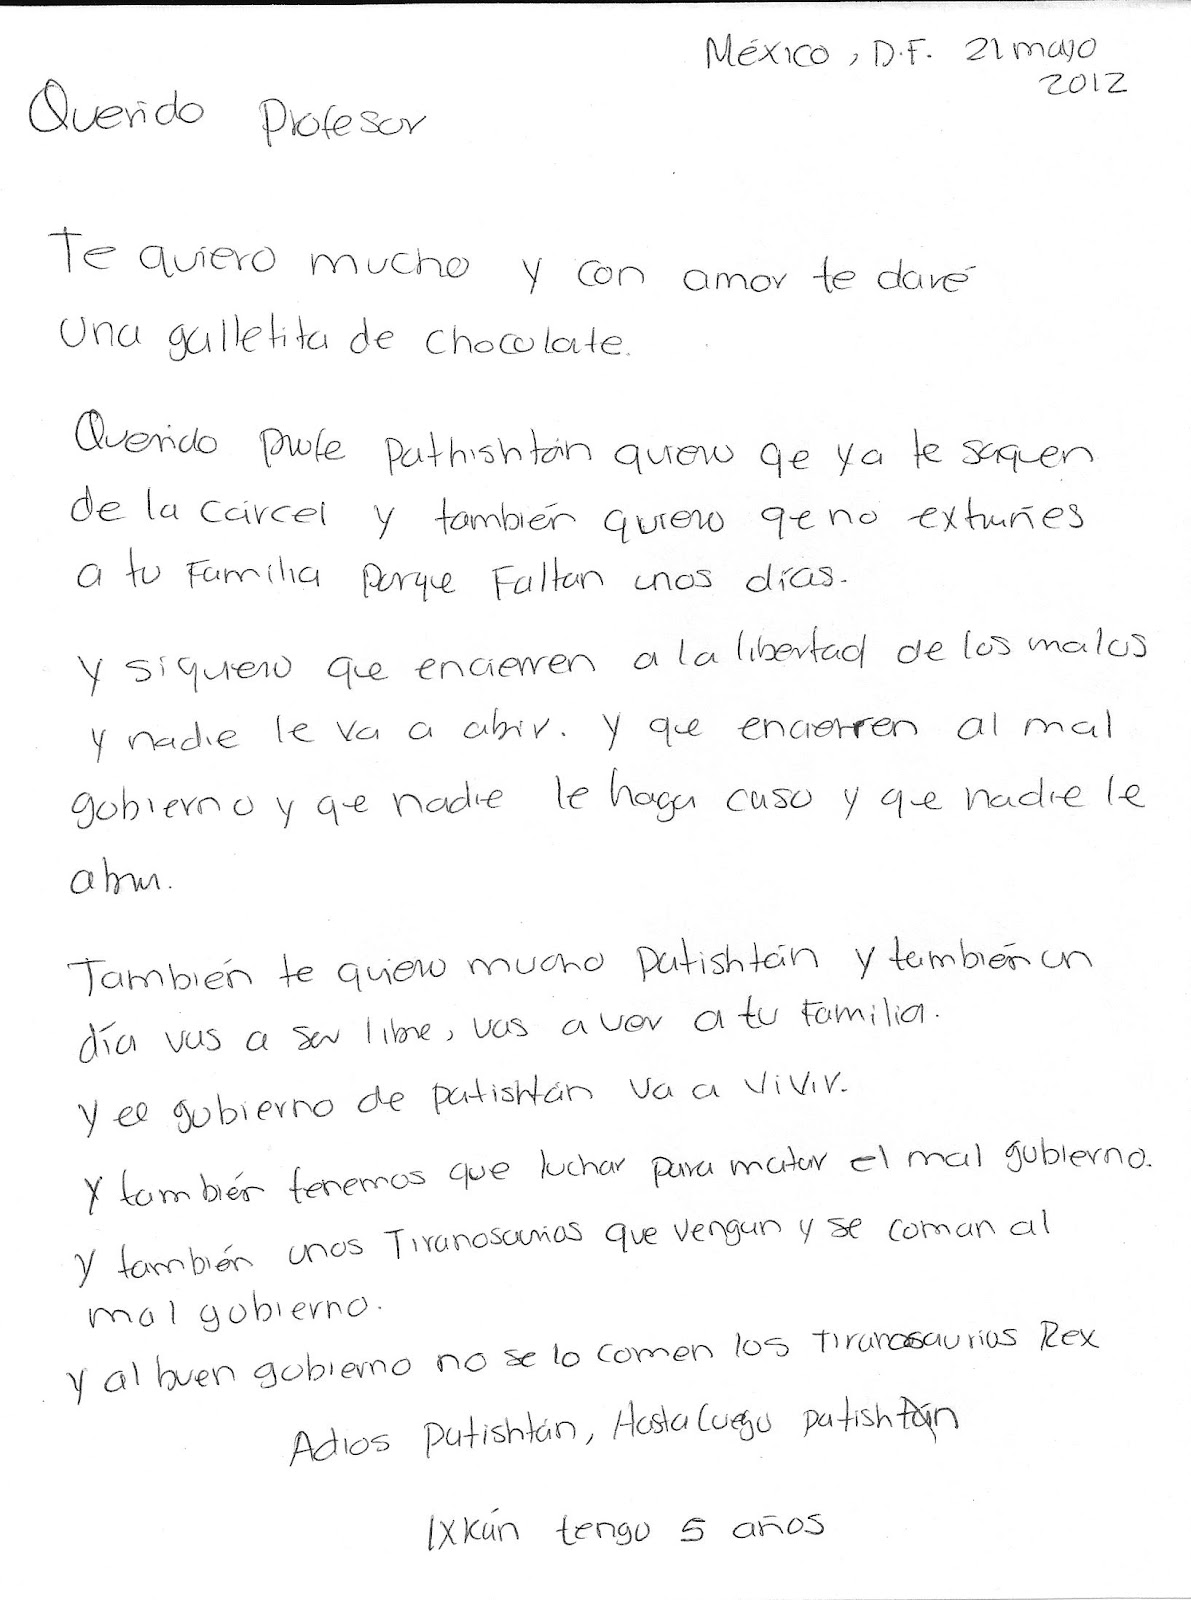 México, D.F. 21 mayo
2012
Querido Profesor
Te quiero mucho y con amor te daré
una galletita de chocolate.
Querido profe Pathishtán quiero qe ya te saquen
de la cárcel y también quiero qe no extrañes
a tu Familia porque Faltan unos días.
Y si quiero que encierren a la libertad de los malos
y nadie le va a abrir. Y que encierren al mal
gobierno y qe nadie le haga caso y que nadie le
abra.
También te quiero mucho Patishtán y también un
día vas a ser libre, vas a ver a tu Familia.
Y el gobierno de Patishtán va a vivir.
Y también tenemos que luchar para matar el mal gobierno.
Y también unos Tiranosaurios que vengan y se coman al
mal gobierno.
Y al buen gobierno no se lo comen los Tiranosaurios Rex
Adios Patishtán, Hasta luego Patishtán
Ixkán tengo 5 años